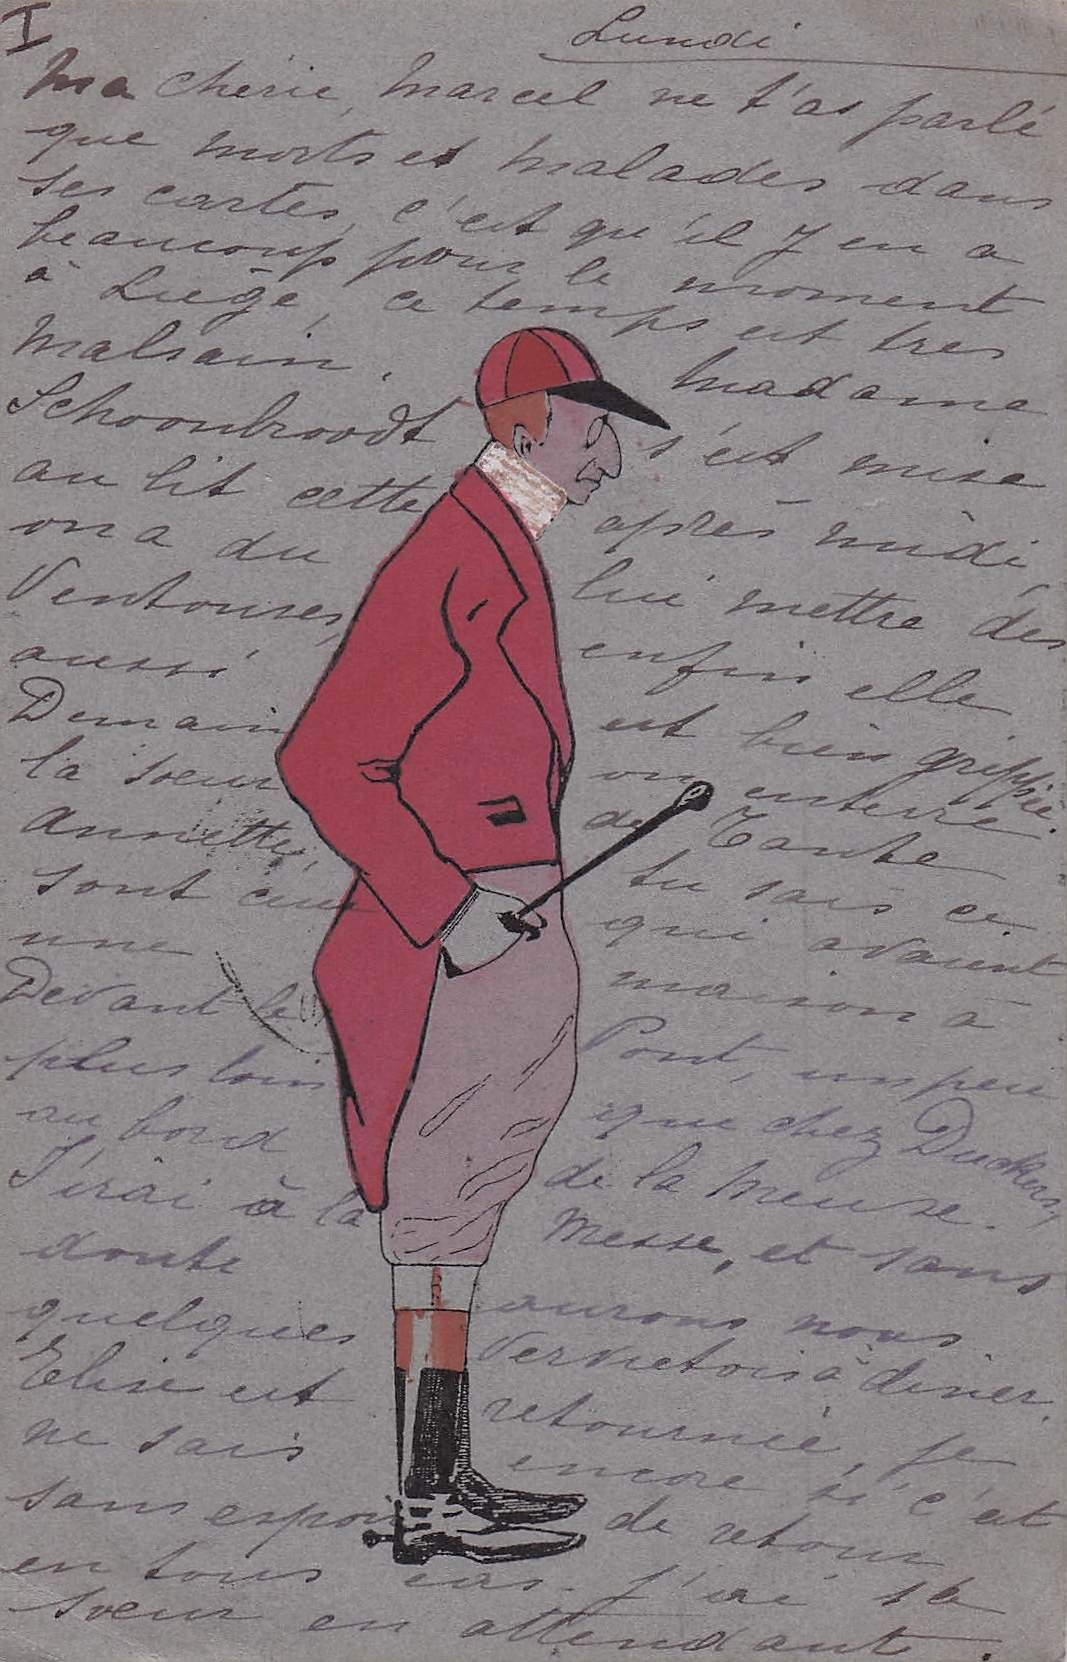 I
Lundi
Ma chérie, Marcel ne t'as parlé
que morts et malades dans
ses cartes, c'est qu'il y en a
beaucoup pour le moment
à Liège, ce temps est très
malsain. Madame
Schoonbroodt s'est mise
au lit cette après midi,
on a du lui mettre des
Ventouses, enfin elle
aussi est bien grippée.
Demain on enterre
la soeur de Tante
Annette, tu sais ce
sont ceux qui avaient
une maison à
Devant le Pont, un peu
plus loin que chez Duckers,
au bord de la Meuse.
J'irai à la Messe, et sans
doute aurons nous
quelques Verviétois à diner.
Elise est retournée, je
ne sais encore si c'est
sans espoir de retour
en tous cas j'ai sa
soeur en attendant.